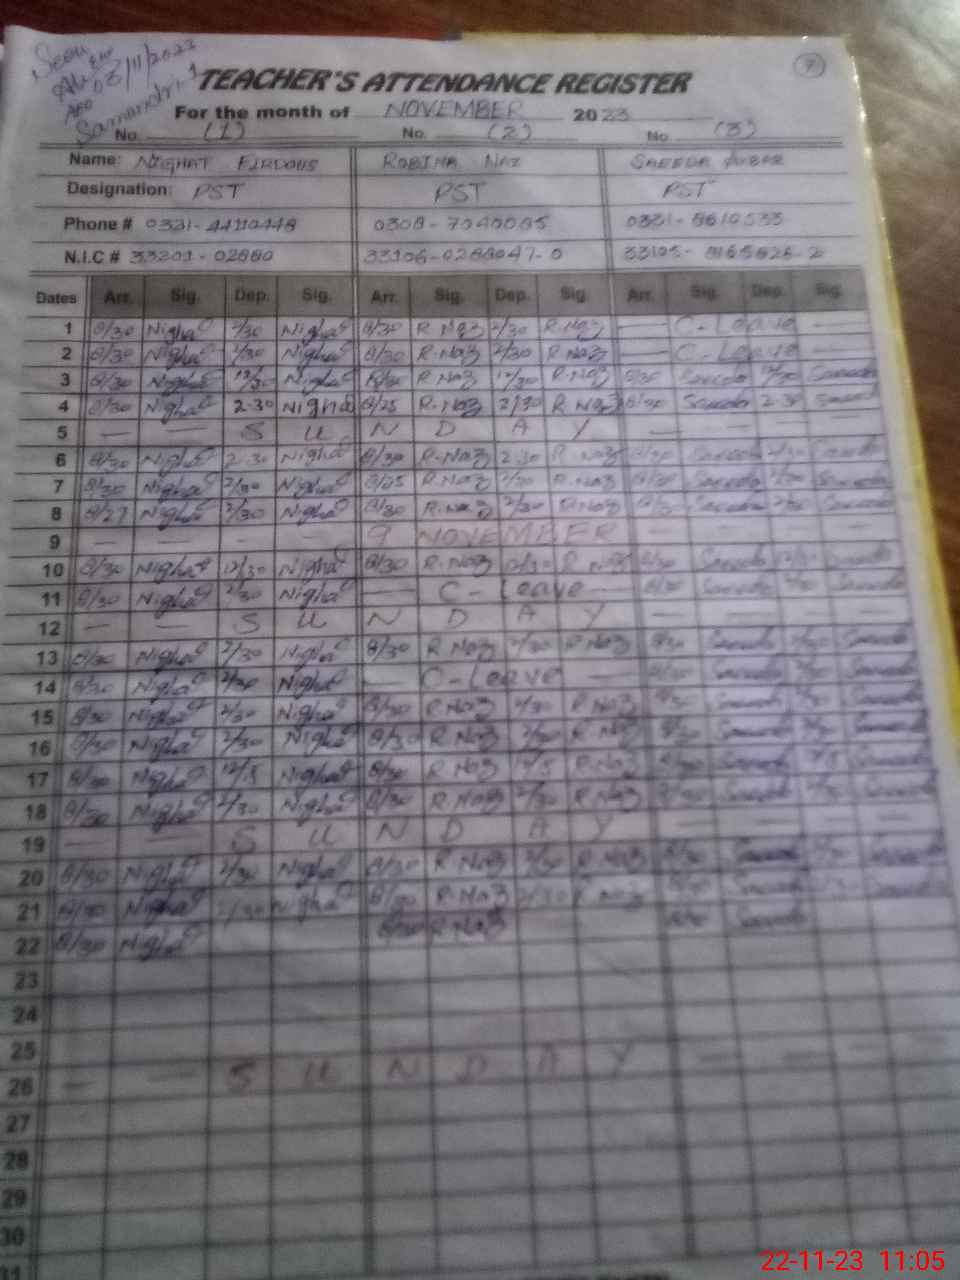 Seen
08/11/2023
AEO
Samundri-1
7
TEACHER'S ATTENDANCE REGISTER
For the month of NOVEMBER 2023
No. (1) No. (2) No (3)
Name: NIGHAT FIRDOUS ROBINA NAZ SAEEDA
Designation: PST PST PST
Phone # 0308-7040085
N.I.C # 33201-02880
Dates Arr. Sig. Dep. Sig. Arr. Sig. Dep. Sig. Arr. Sig. Dep. Sig.
1 8/30 Nighat 2/30 Nighat 8/30 R.Naz 2/30 R.Naz — C-Leave —
2 8/30 Nighat 2/30 Nighat 8/30 R.Naz 2/30 R.Naz — C-Leave —
3 8/30 Nighat 12/30 Nighat 8/30 R.Naz 12/30 R.Naz 8/30 Saeeda 12/30 Saeeda
4 8/30 Nighat 2-30 Nighat 8/25 R.Naz 2/30 R.Naz 8/30 Saeeda 2-30 Saeeda
5 — — S U N D A Y — — — —
6 8/30 Nighat 2-30 Nighat 8/30 R.Naz 2-30 R.Naz 8/30 Saeeda 2/30 Saeeda
7 8/30 Nighat 2/30 Nighat 8/25 R.Naz 2/30 R.Naz 8/30 Saeeda 2/30 Saeeda
8 8/27 Nighat 2/30 Nighat 8/30 R.Naz 2/30 R.Naz Saeeda 2/30 Saeeda
9 — — — — 9 NOVEMBER — — — —
10 8/30 Nighat 12/30 Nighat 8/30 R.Naz 12/30 R.Naz 8/30 Saeeda 12/30 Saeeda
11 8/30 Nighat 2/30 Nighat — C-Leave — 8/30 Saeeda 2/30 Saeeda
12 — — S U N D A Y — — — —
13 8/30 Nighat 2/30 Nighat 8/30 R.Naz 2/30 R.Naz 8/30 Saeeda 2/30 Saeeda
14 8/30 Nighat 2/30 Nighat — C-Leave — 8/30 Saeeda 2/30 Saeeda
15 8/30 Nighat 2/30 Nighat 8/30 R.Naz 2/30 R.Naz 8/30 Saeeda 2/30 Saeeda
16 8/30 Nighat 2/30 Nighat 8/30 R.Naz 2/30 R.Naz 8/30 Saeeda 2/30 Saeeda
17 8/30 Nighat 12/5 Nighat 8/30 R.Naz 12/5 R.Naz 8/30 Saeeda Saeeda
18 8/30 Nighat 2/30 Nighat 8/30 R.Naz 2/30 R.Naz 8/30 Saeeda 2/30 Saeeda
19 — — S U N D A Y — — — —
20 8/30 Nighat 2/30 Nighat 8/30 R.Naz 2/30 R.Naz 8/30 Saeeda 2/30 Saeeda
21 8/30 Nighat 2/30 Nighat 8/30 R.Naz 2/30 R.Naz 8/30 Saeeda 2/30 Saeeda
22 8/30 Nighat 8/30 R.Naz 8/30 Saeeda
23
24
25
26 — — S U N D A Y — — — —
27
28
29
30
31
22-11-23 11:05